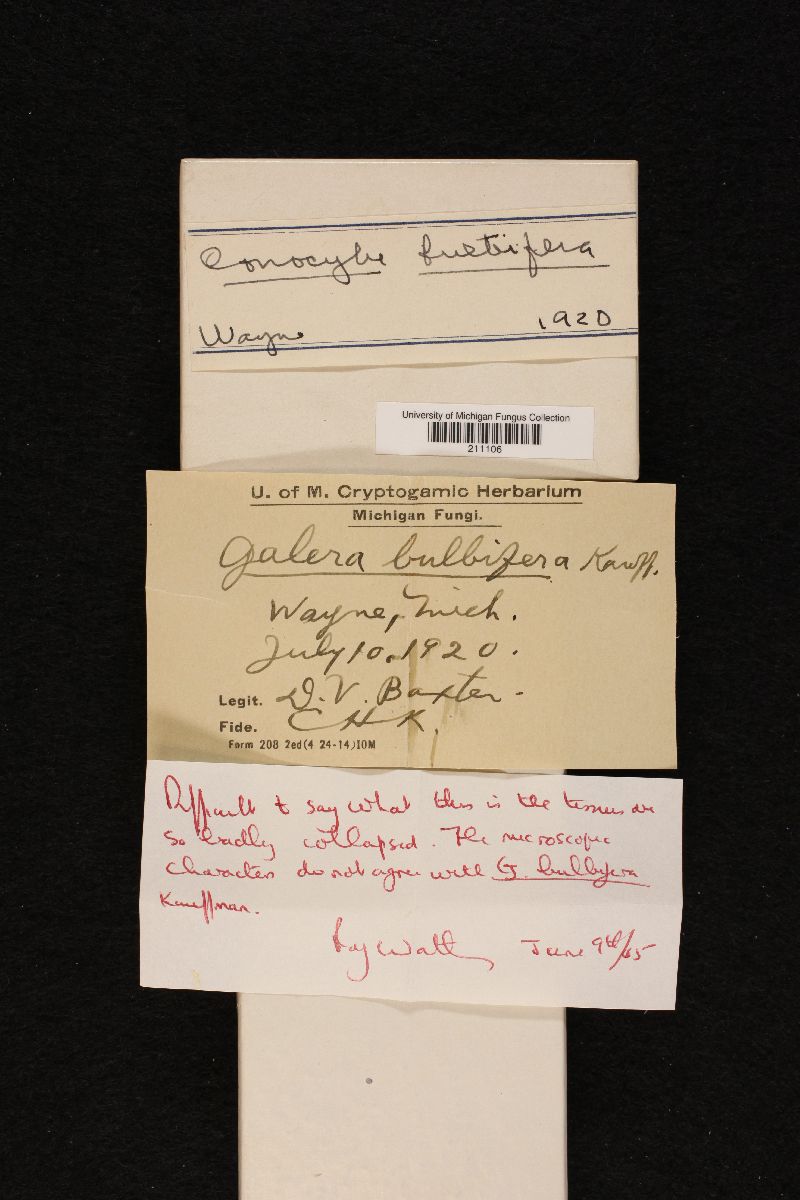 Conocybe bulbifera
Wayne 1920
University of Michigan Fungus Collection
211106
U. of M. Cryptogamic Herbarium
Michigan Fungi.
Galera bulbifera Kauff.
Wayne, Mich.
July 10, 1920.
Legit. D. V. Baxter.
Fide. C H K.
Form 208 2ed(4 24-14)10M
Difficult to say what this is the tissues are
so badly collapsed. The microscopic
characters do not agree with G. bulbifera
Kauffman.
Roy Watling June 9th/65